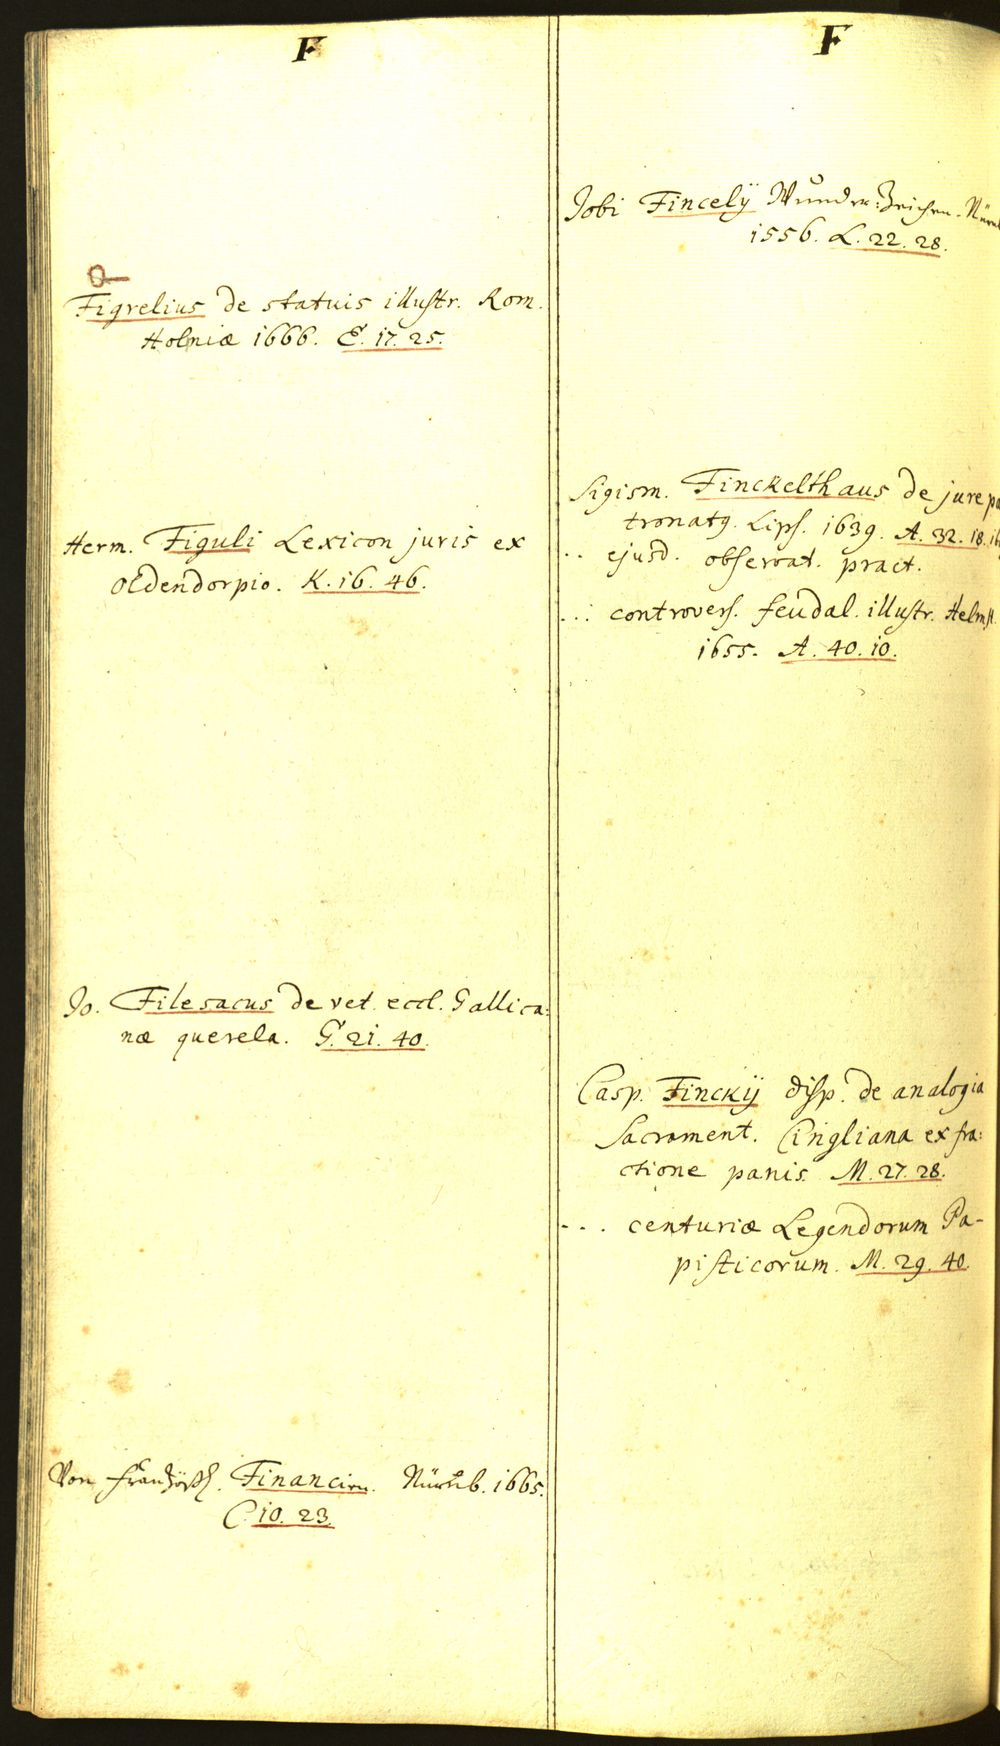 F
Figrelius de statuis illustr. Rom.
Holmiæ 1666. E. 17. 25.
Herm. Figuli Lexicon juris ex
Oldendorpio. K. 16. 46.
Jo. Filesacus de vet. eccl. Gallica:
næ querela. G. 21. 40.
Von Französch. Financien. Nürnb. 1665.
C. 10. 23.
F
Jobi Fincelÿ Wunder-Zeichen.
1556. L. 22. 28.
Sigism. Finckelthaus de jure pa
tronatq. Lips. 1639. A. 32. 18.
.. ejusd. observat. pract.
... controvers. feudal. illustr. Helmst.
1655. A. 40. 10.
Casp. Finckÿ disp. de analogia
Sacrament. Cingliana ex fra:
ctione panis. M. 27. 28.
... centuriæ Legendorum Pa-
pisticorum. M. 29. 40.